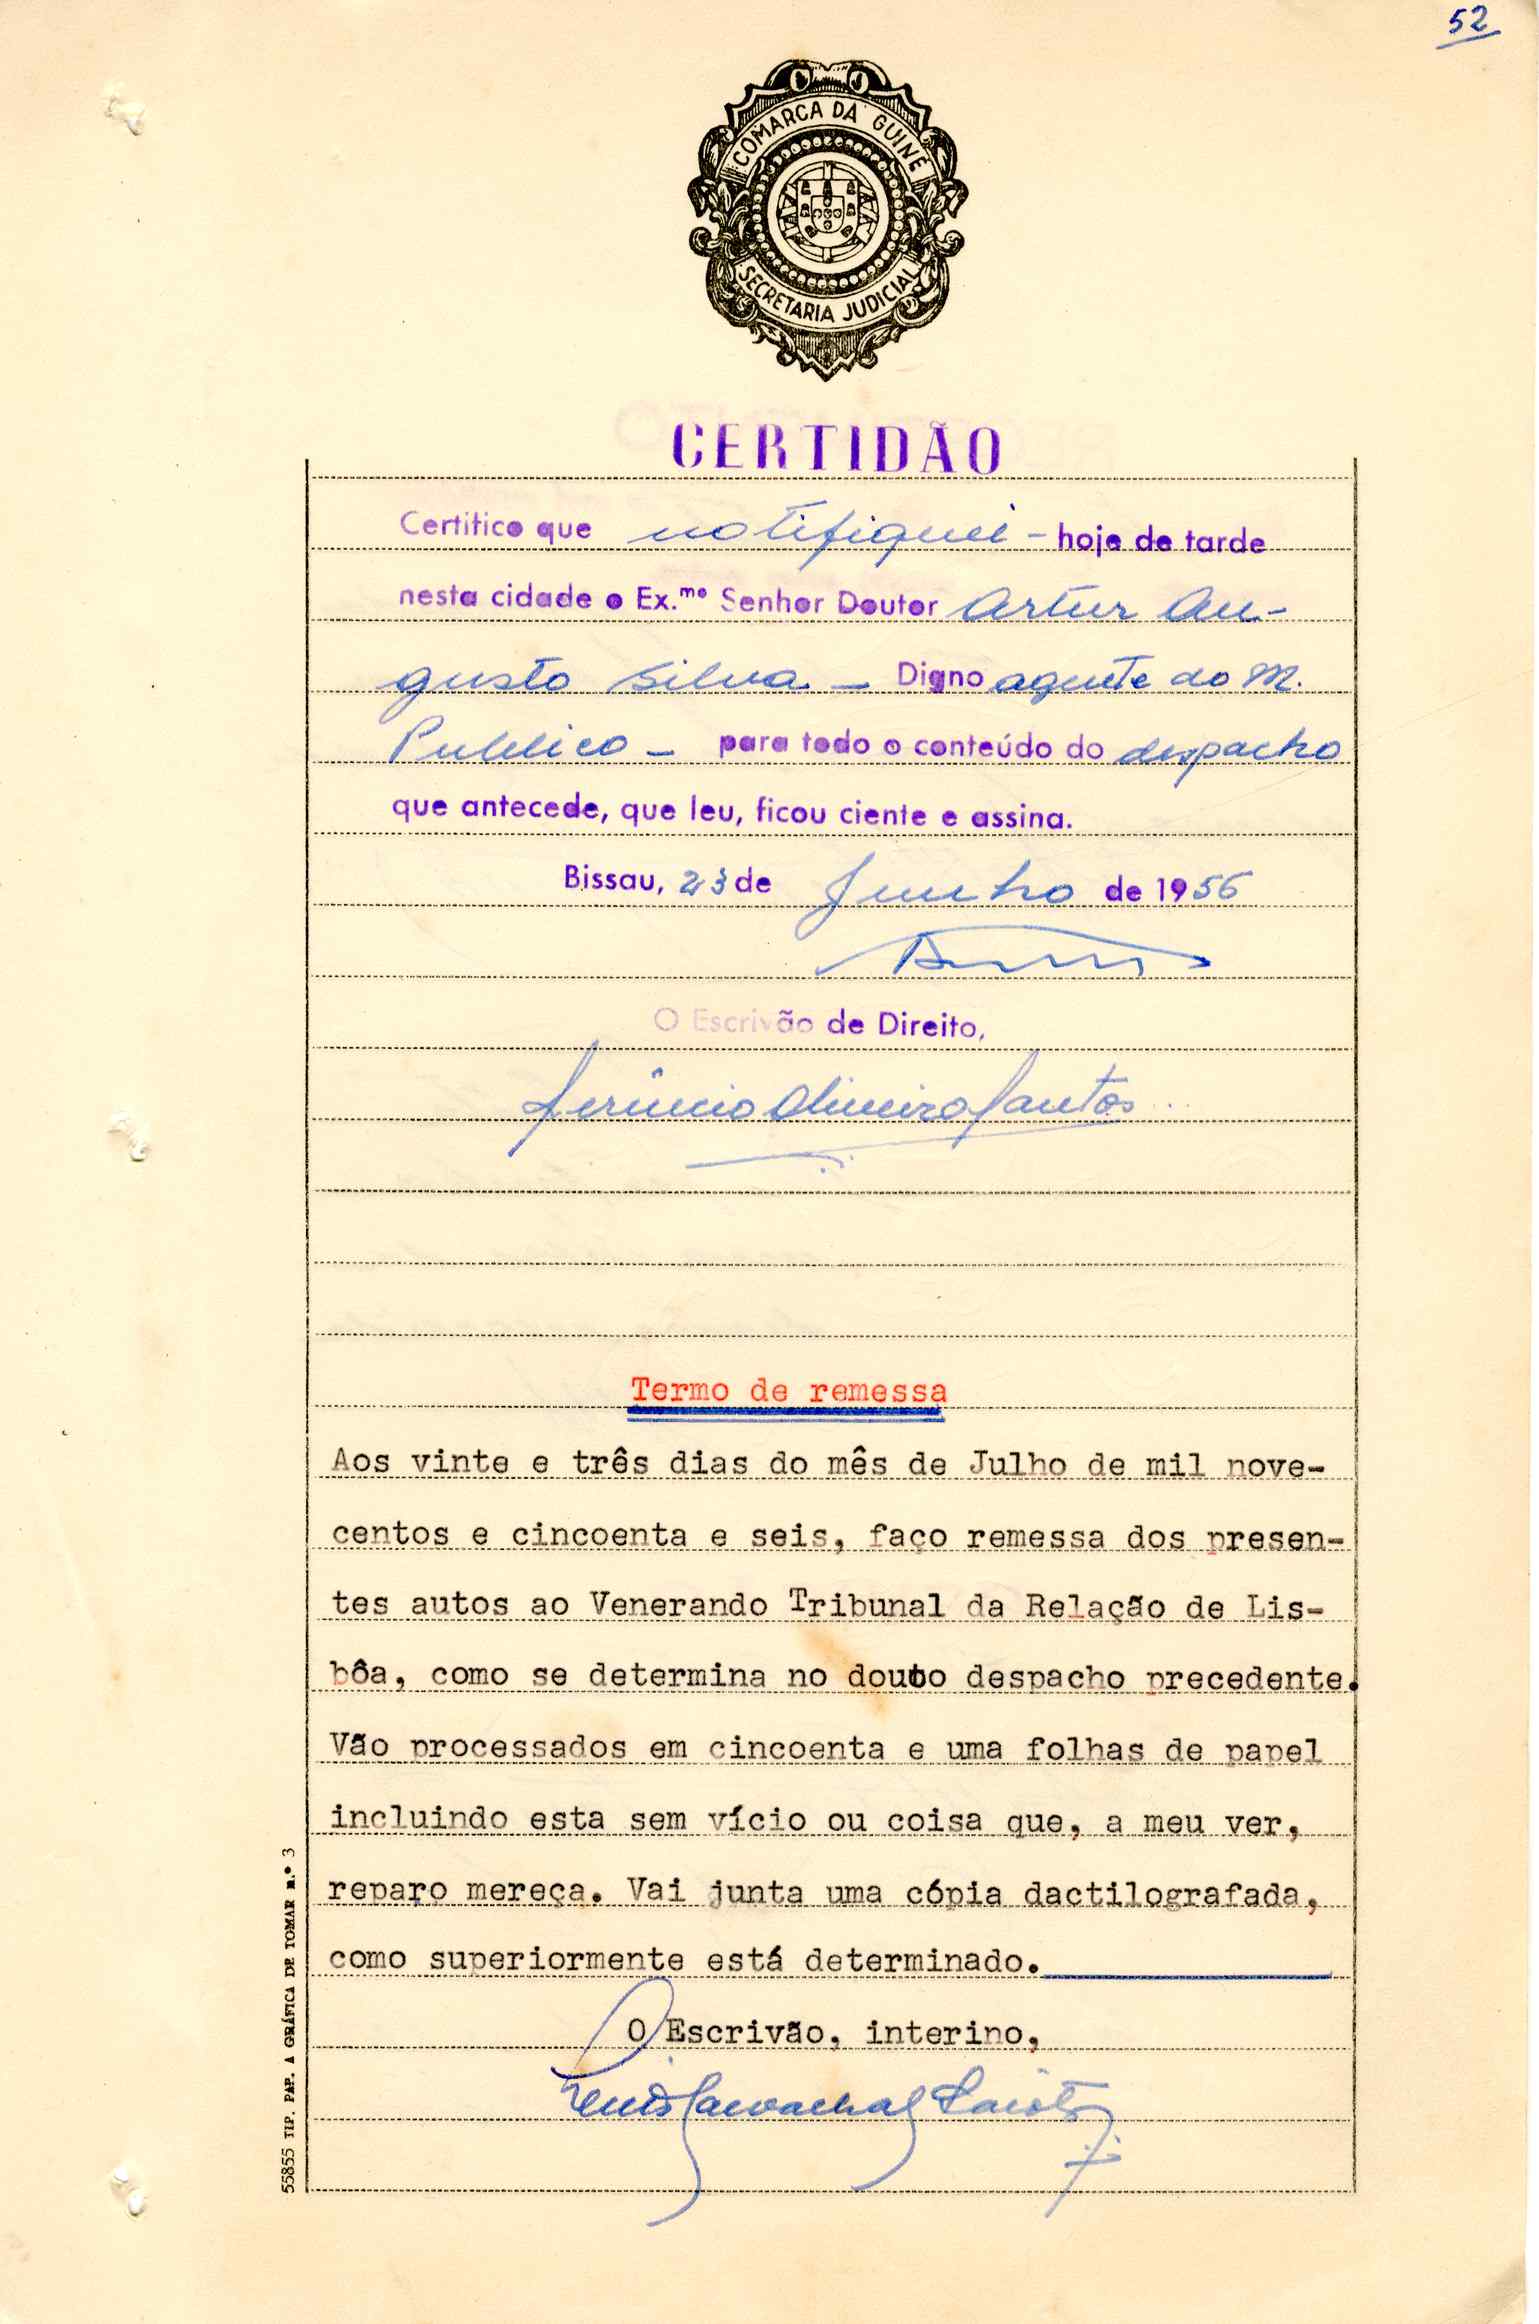 52
COMARCA DA GUINÉ
SECRETARIA JUDICIAL
CERTIDÃO
Certifico que notifiquei - hoje de tarde
nesta cidade o Ex.mo Senhor Doutor Artur Au-
gusto Silva - Digno agente do M.
Publico - para todo o conteúdo do despacho
que antecede, que leu, ficou ciente e assina.
Bissau, 23 de Junho de 1956
O Escrivão de Direito,
Oliveira Santos
Termo de remessa
Aos vinte e três dias do mês de Julho de mil nove-
centos e cincoenta e seis, faço remessa dos presen-
tes autos ao Venerando Tribunal da Relação de Lis-
bôa, como se determina no douto despacho precedente.
Vão processados em cincoenta e uma folhas de papel
incluindo esta sem vício ou coisa que, a meu ver,
reparo mereça. Vai junta uma cópia dactilografada,
como superiormente está determinado.
O Escrivão, interino,
55855 TIP. PAP. A GRÁFICA DE TOMAR n.º 3